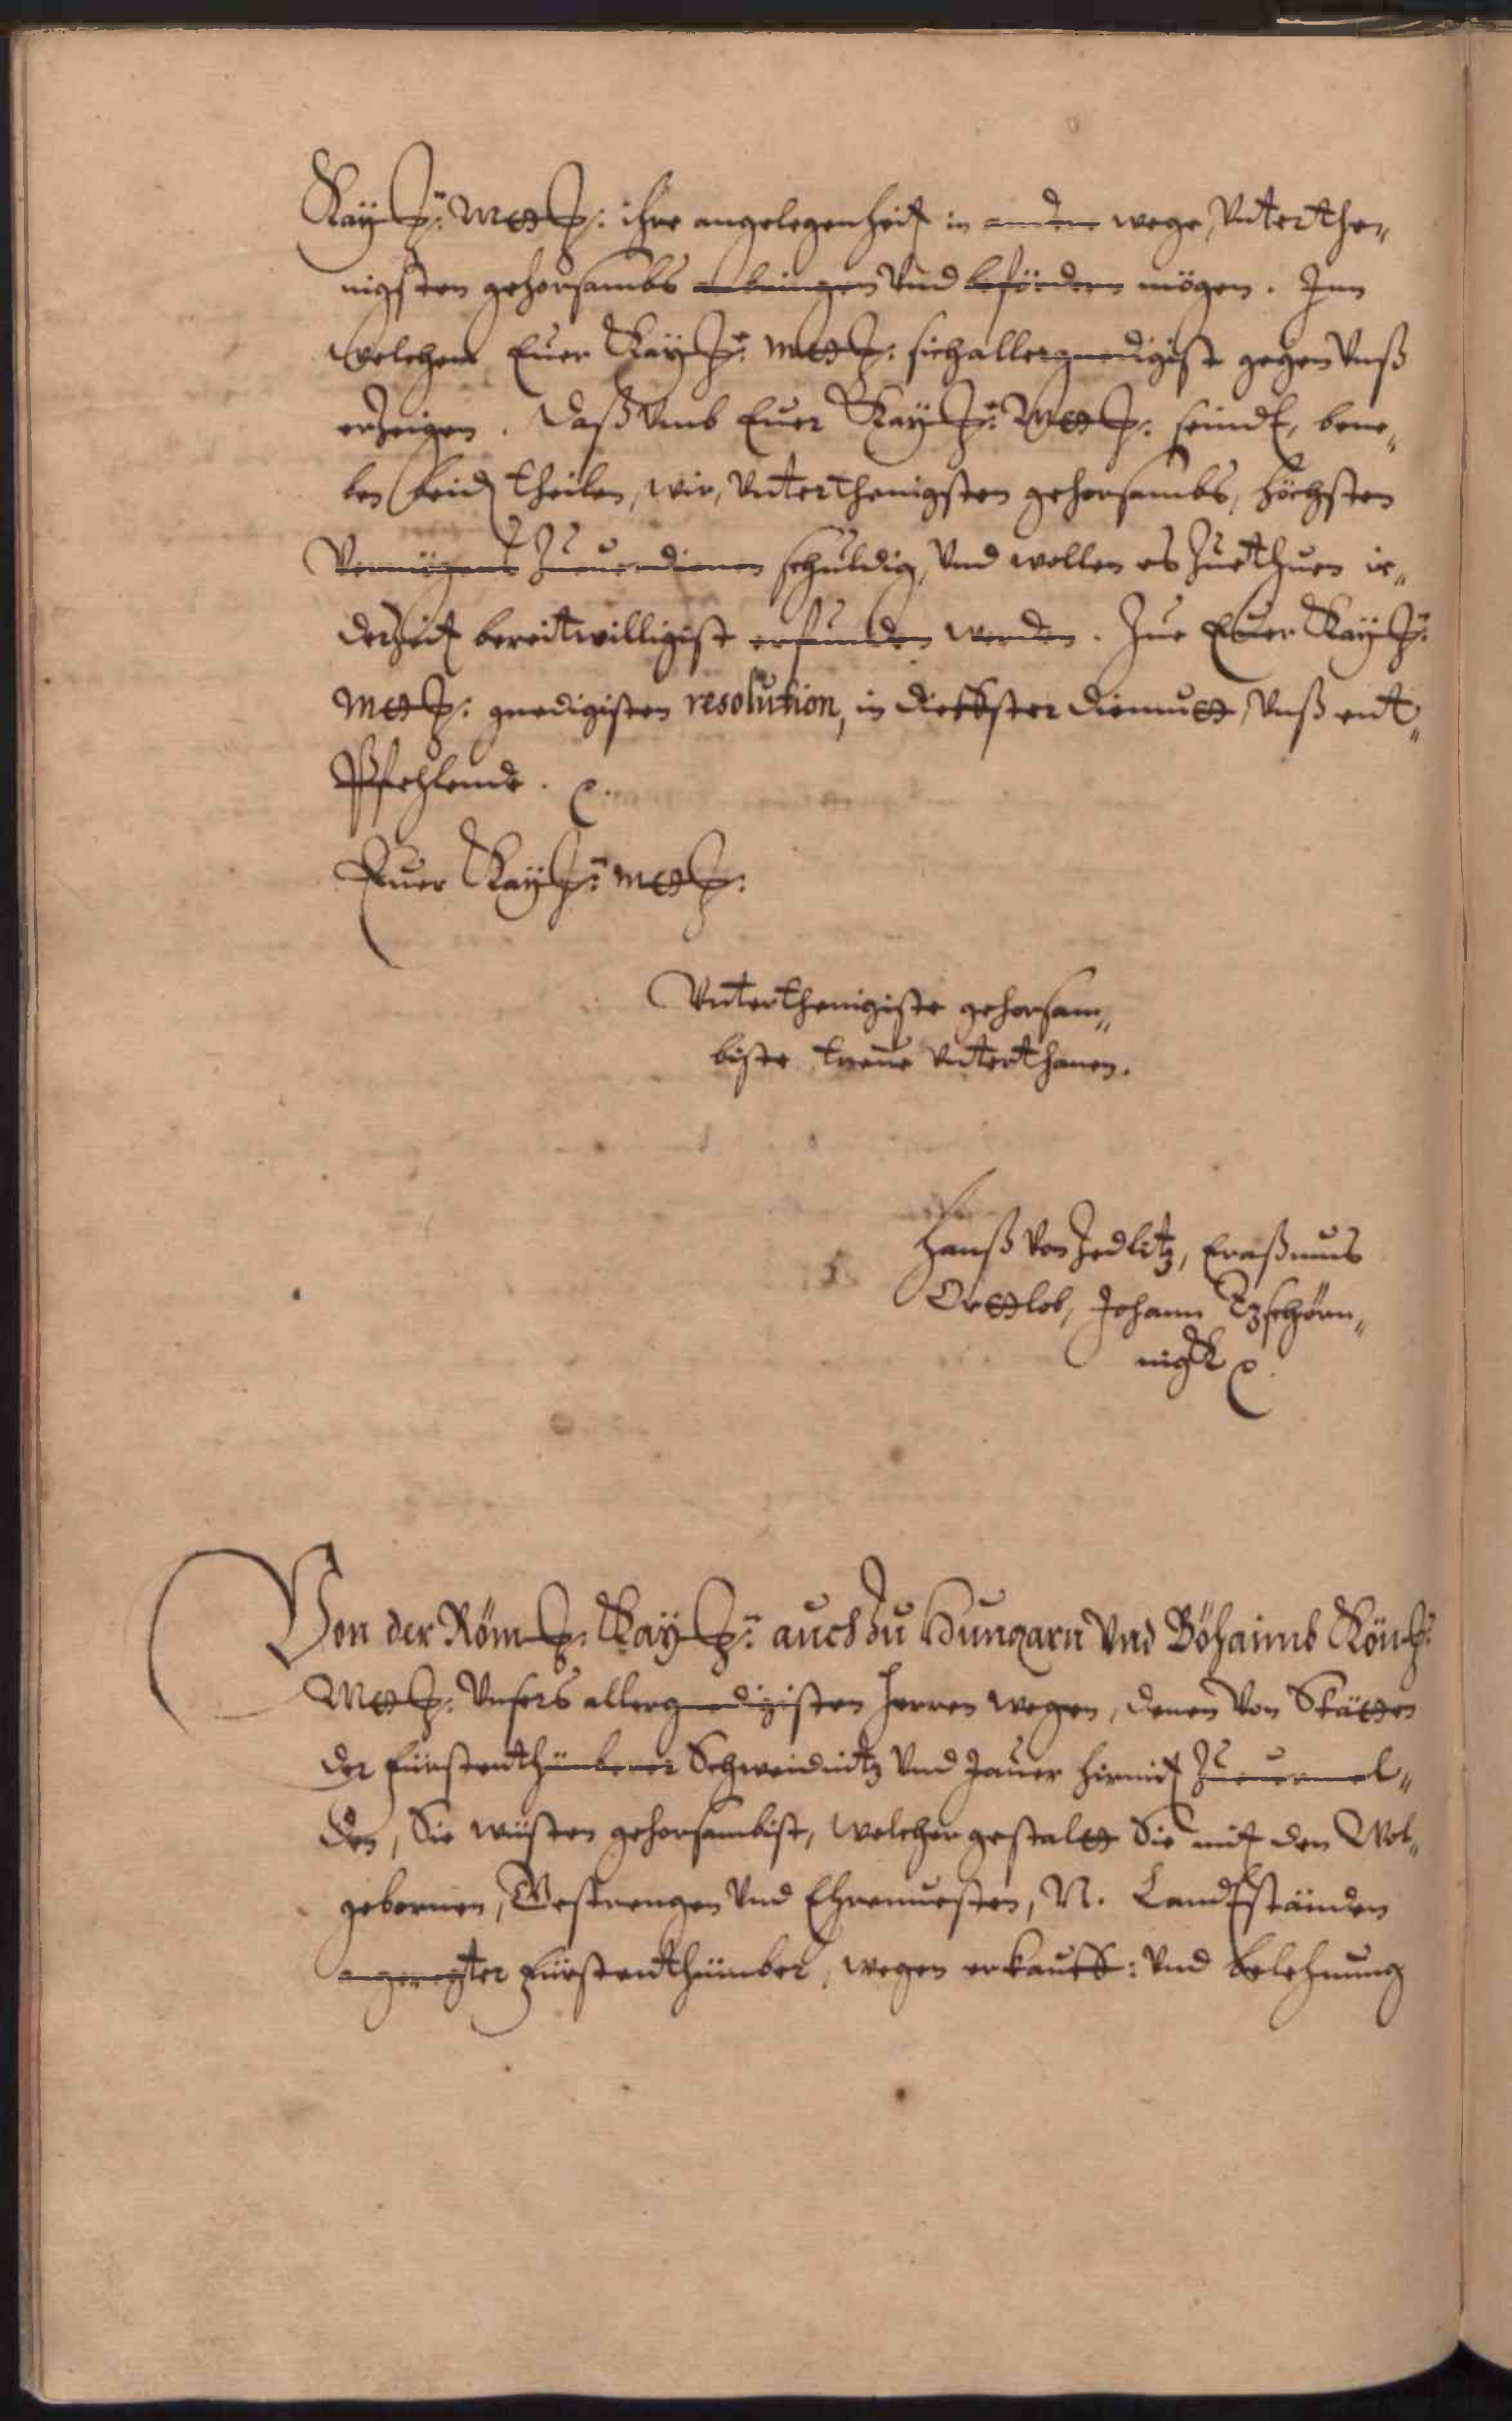 Kay: Mtt: ihre angelegenheit in andere wege, Vnterthe„
nigsten gehorsambs anbringen Vnd befördern mögen. Inn
Welchem Euer Kay: Mtt: sich allergnedigist gegen Vnß
erzeigen. Daß Vmb Euer Kay: Mtt: seindt, bene„
ben beid theilen, wir, Vnterthenigsten gehorsambs, höchsten
Vermögens Zuuerdienen schuldig, Vnd wollen es Zuethuen ie„
derzeit bereitwilligist erfunden werden. Zue Euer Kay:
Mtt: gnedigisten resolution, in dieffster diemutt, Vnß ent„
Pfehlende.
Euer Kay: Mtt:
Vnterthenigiste gehorsam„
biste treue Vnterthanen.
Hanß Von Zedlitz, Eraßmus
Orttlob, Johann Tzschörn„
nigk
Von der Röm: Kay: auch Zu Hungarn Vnd Böhaimb Kön:
Mtt: Vnsers allergnedigisten Herren wegen, denen Von Stätten
der Fürstenthümberer Schweidnitz Vnd Jauer hirmit Zuuermel„
den, Sie wüsten gehorsambist, welcher gestaltt Sie mit den Wol„
gebornen, Gestrengen Vnd Ehrnuesten, N. Landtständen
angeregter Fürstenthümber, wegen erkauff: Vnd belehnung